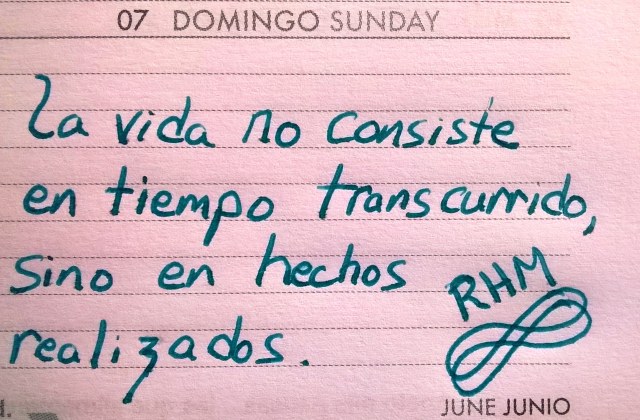 07 DOMINGO SUNDAY
La vida no consiste
en tiempo transcurrido,
sino en hechos
RHM
realizados.
JUNE JUNIO